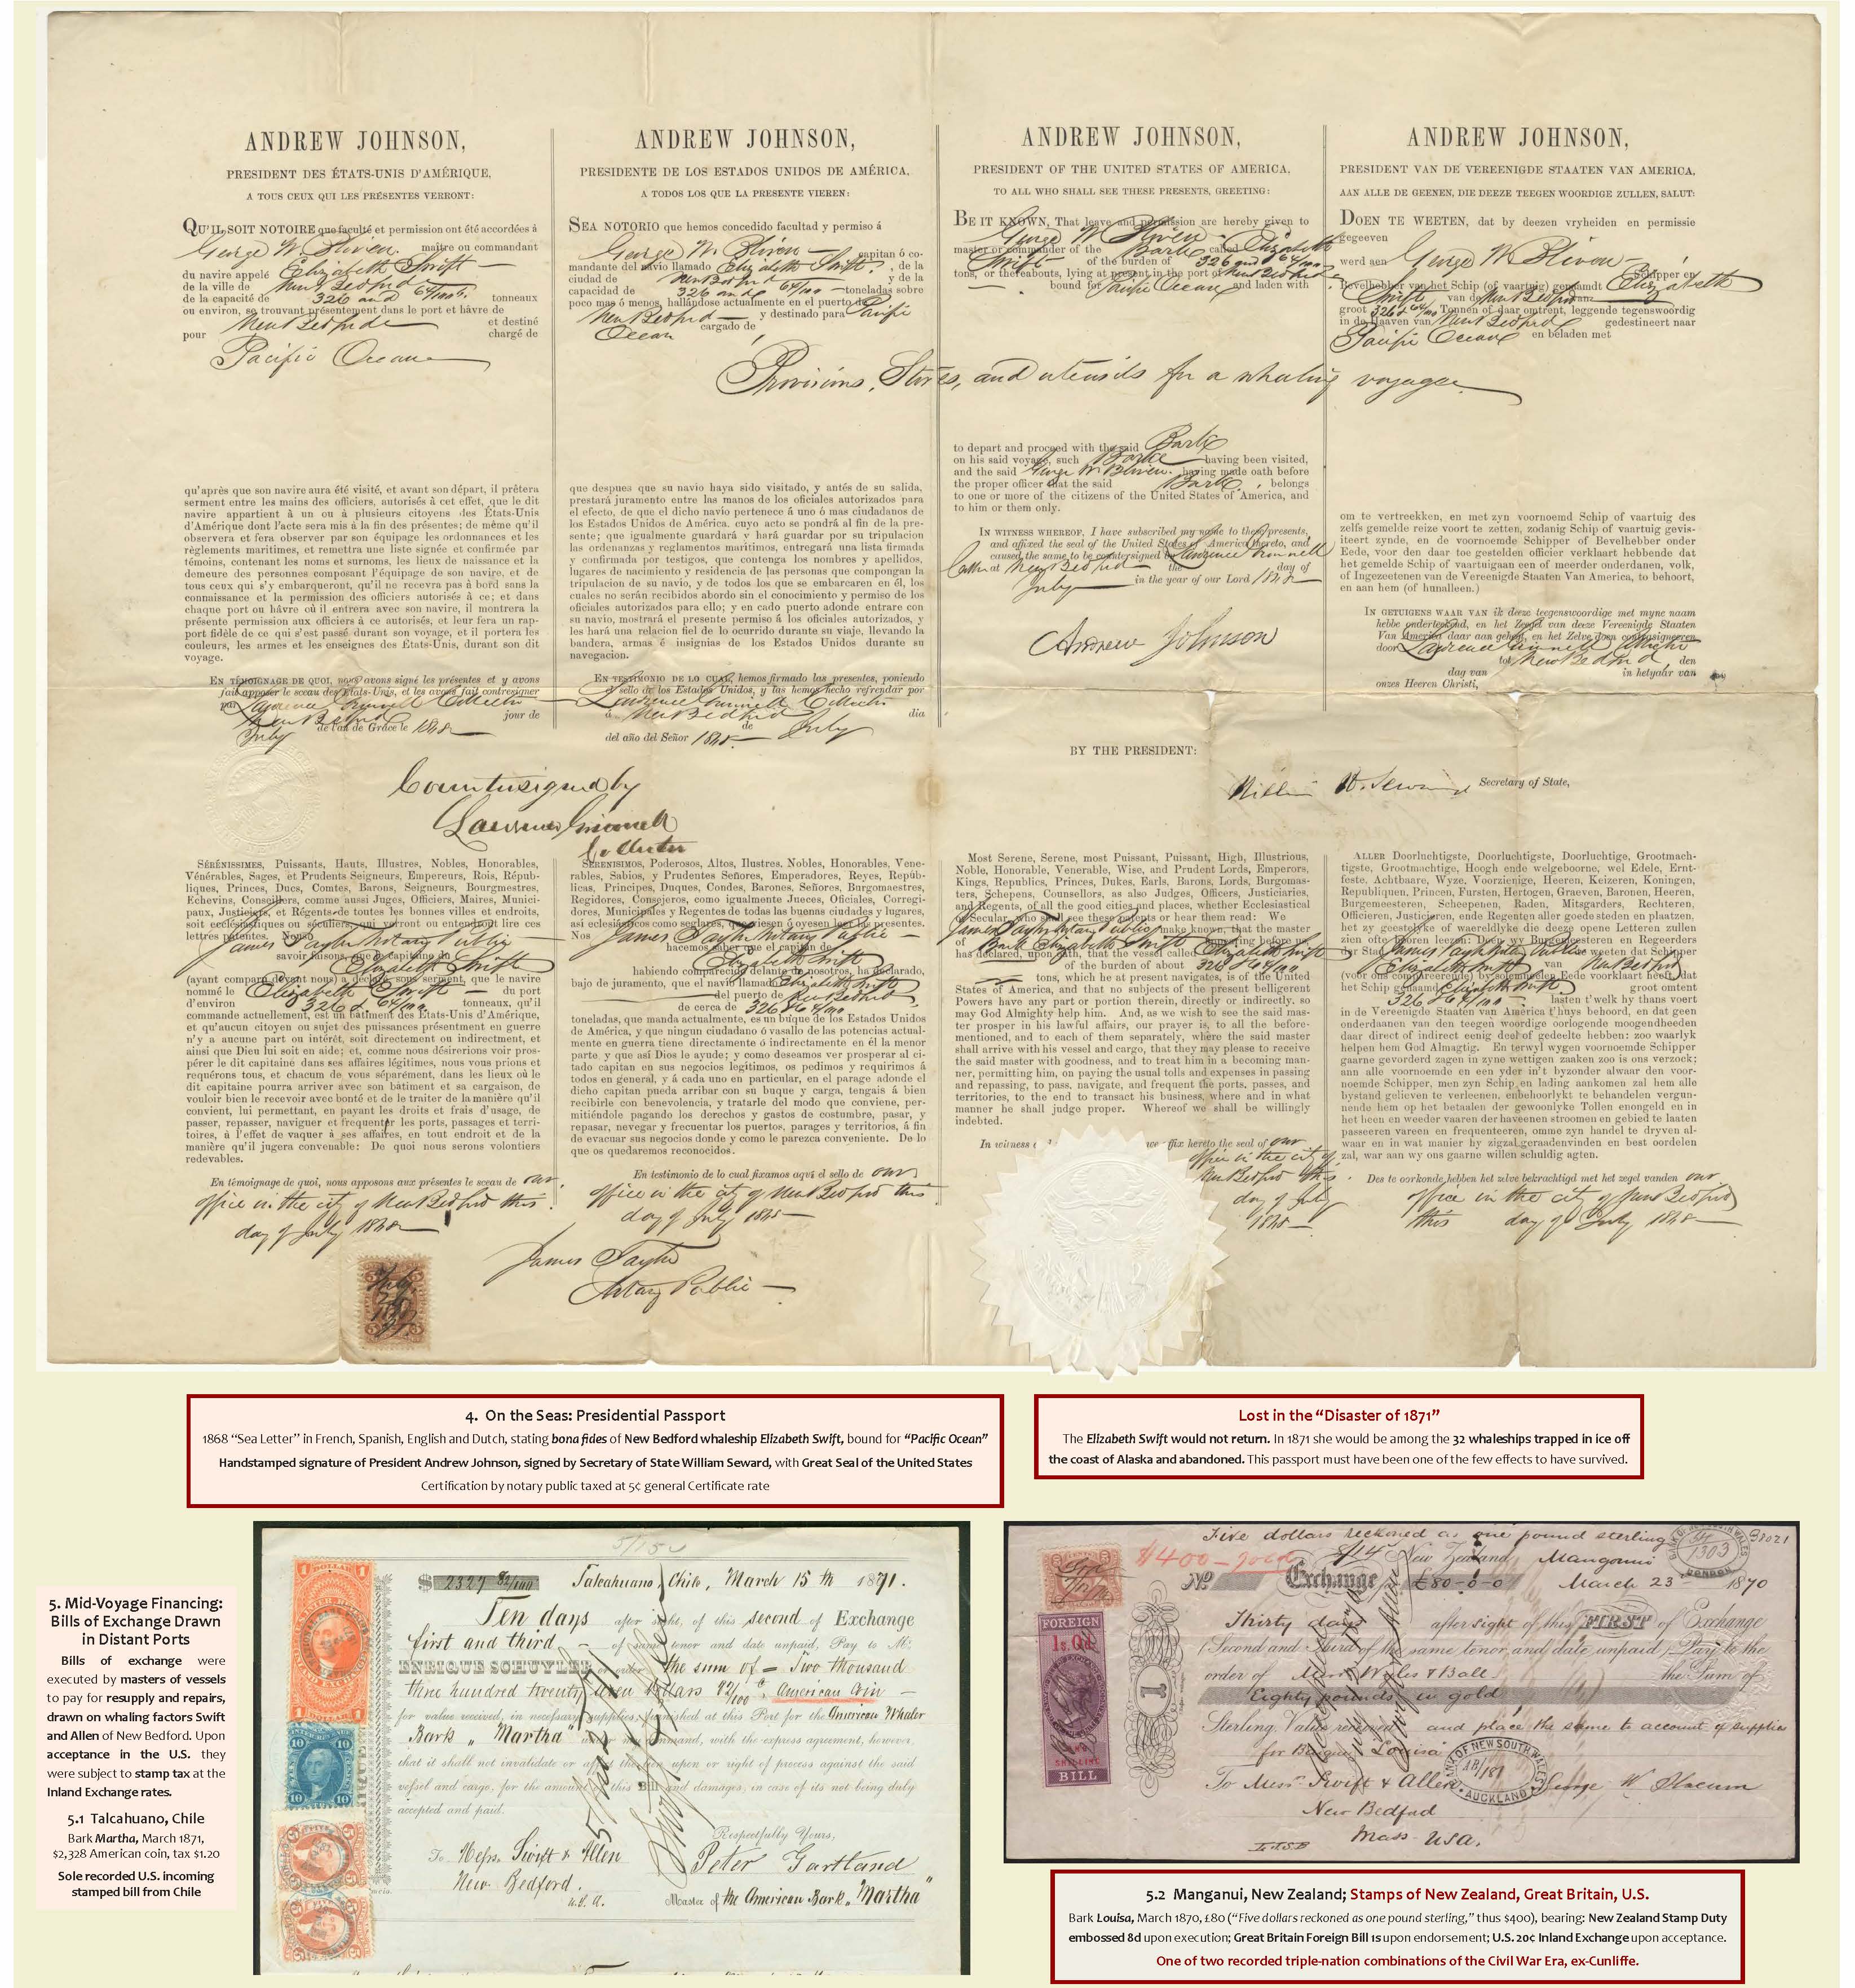 ANDREW JOHNSON,
PRESIDENT DES ÉTATS-UNIS D'AMÉRIQUE,
A TOUS CEUX QUI LES PRÉSENTES VERRONT:
QU'IL SOIT NOTOIRE que faculté et permission ont été accordées à
George W. Bliven maître ou commandant
du navire appelé Elizabeth Swift
de la ville de New Bedford
de la capacité de 326 and 64/100 tonneaux
ou environ, se trouvant présentement dans le port et hâvre de
New Bedford et destiné
pour chargé de
Pacific Ocean
ANDREW JOHNSON,
PRESIDENTE DE LOS ESTADOS UNIDOS DE AMÉRICA,
A TODOS LOS QUE LA PRESENTE VIEREN:
SEA NOTORIO que hemos concedido facultad y permiso á
George W. Bliven capitan ó co-
mandante del navío llamado Elizabeth Swift, de la
ciudad de New Bedford y de la
capacidad de 326 and 64/100 toneladas sobre
poco mas ó menos, hallándose actualmente en el puerto de
New Bedford y destinado para Pacific
Ocean cargado de
ANDREW JOHNSON,
PRESIDENT OF THE UNITED STATES OF AMERICA,
TO ALL WHO SHALL SEE THESE PRESENTS, GREETING:
BE IT KNOWN, That leave and permission are hereby given to
George W Bliven
master or commander of the Bark called Elizabeth
Swift of the burden of 326 and 64/100
tons, or thereabouts, lying at present in the port of New Bedford
bound for Pacific Ocean and laden with
ANDREW JOHNSON,
PRESIDENT VAN DE VEREENIGDE STAATEN VAN AMERICA,
AAN ALLE DE GEENEN, DIE DEEZE TEEGEN WOORDIGE ZULLEN, SALUT:
DOEN TE WEETEN, dat by deezen vryheiden en permissie
gegeeven
werd aen George W Bliven Schipper en
Bevelhebber van het Schip (of vaartuig) genaamdt Elizabeth
Swift van de New Bedford
groot 326 & 64/100 Tonnen of daar omtrent, leggende tegenswoordig
in de Haaven van New Bedford gedestineert naar
Pacific Ocean en beladen met
Provisions, Stores, and utensils for a whaling voyage
qu'après que son navire aura été visité, et avant son départ, il prêtera
serment entre les mains des officiers, autorisés à cet effet, que le dit
navire appartient à un ou à plusieurs citoyens des États-Unis
d'Amérique dont l'acte sera mis à la fin des présentes; de même qu'il
observera et fera observer par son équipage les ordonnances et les
règlements maritimes, et remettra une liste signée et confirmée par
témoins, contenant les noms et surnoms, les lieux de naissance et la
demeure des personnes composant l'équipage de son navire, et de
tous ceux qui s'y embarqueront, qu'il ne recevra pas à bord sans la
connaissance et la permission des officiers autorisés à ce; et dans
chaque port ou hâvre où il entrera avec son navire, il montrera la
présente permission aux officiers à ce autorisés, et leur fera un rap-
port fidèle de ce qui s'est passé durant son voyage, et il portera les
couleurs, les armes et les enseignes des États-Unis, durant son dit
voyage.
EN TÉMOIGNAGE DE QUOI, nous avons signé les présentes et y avons
fait apposer le sceau des États-Unis, et les avons fait contresigner
par Lawrence Grinnell Collector
New Bedford jour de
July de l'an de Grâce le 1868
que despues que su navio haya sido visitado, y antés de su salida,
prestará juramento entre las manos de los oficiales autorizados para
el efecto, de que el dicho navio pertenece á uno ó mas ciudadanos de
los Estados Unidos de América. cuyo acto se pondrá al fin de la pre-
sente; que igualmente guardará y hará guardar por su tripulacion
las ordenanzas y reglamentos marítimos, entregará una lista firmada
y confirmada por testigos, que contenga los nombres y apellidos,
lugares de nacimiento y residencia de las personas que compongan la
tripulacion de su navio, y de todos los que se embarcaren en él, los
cuales no serán recibidos abordo sin el conocimiento y permiso de los
oficiales autorizados para ello; y en cado puerto adonde entrare con
su navio, mostrará el presente permiso á los oficiales autorizados, y
les hará una relacion fiel de lo ocurrido durante su viaje, llevando la
bandera, armas é insignias de los Estados Unidos durante su
navegacion.
EN TESTIMONIO DE LO CUAL, hemos firmado las presentes, poniendo
el sello de los Estados Unidos, y las hemos hecho refrendar por
Lawrence Grinnell Collector
á New Bedford dia
de
del año del Señor 1868 July
to depart and proceed with the said Bark
on his said voyage, such Bark having been visited,
and the said George W. Bliven having made oath before
the proper officer that the said Bark, belongs
to one or more of the citizens of the United States of America, and
to him or them only.
IN WITNESS WHEREOF, I have subscribed my name to these presents,
and affixed the seal of the United States of America thereto, and
caused the same to be countersigned by Lawrence Grinnell
at New Bedford the day of
July in the year of our Lord 1868
Andrew Johnson
om te vertreekken, en met zyn voornoemd Schip of vaartuig des
zelfs gemelde reize voort te zetten, zodanig Schip of vaartuig gevis-
iteert zynde, en de voornoemde Schipper of Bevelhebber onder
Eede, voor den daar toe gestelden officier verklaart hebbende dat
het gemelde Schip of vaartuigaan een of meerder onderdanen, volk,
of Ingezeetenen van de Vereenigde Staaten Van America, te behoort,
en aan hem (of hunalleen.)
IN GETUIGENS WAAR VAN ik deeze teegenswoordige met myne naam
hebbe onderteekend, en het Zegel van deeze Vereenigde Staaten
Van America daar aan gehegt, en het Zelve doen contrasigneeren
door Lawrence Grinnell Collector
tot New Bedford, den
dag van in hetyaar van
onzes Heeren Christi,
BY THE PRESIDENT:
William H. Seward Secretary of State,
Countersigned by
Lawrence Grinnell
Collector
SÉRÉNISSIMES, Puissants, Hauts, Illustres, Nobles, Honorables,
Vénérables, Sages, et Prudents Seigneurs, Empereurs, Rois, Répub-
liques, Princes, Ducs, Comtes, Barons, Seigneurs, Bourgmestres,
Echevins, Conseillers, comme aussi Juges, Officiers, Maires, Munici-
paux, Justiciers, et Régents de toutes les bonnes villes et endroits,
soit ecclésiastiques ou séculiers, qui verront ou entendront lire ces
lettres patentes. Nous,
James Taylor Notary Public
savoir faisons, que le capitaine du
Elizabeth Swift
(ayant comparu devant nous) a déclaré sous serment, que le navire
nommé le Elizabeth Swift du port
d'environ 326 & 64/100 tonneaux, qu'il
commande actuellement, est bâtiment des États-Unis d'Amérique,
et qu'aucun citoyen ou sujet des puissances présentment en guerre
n'y a aucun part ou intérêt, soit directement ou indirectment, et
ainsi que Dieu lui soit en aide; et, comme nous désirerions voir pros-
pérer le dit capitaine dans ses affaires légitimes, nous vous prions et
requérons tous, et chacum de vous séparément, dans les lieux où le
dit capitaine pourra arriver avec son bâtiment et sa cargaison, de
vouloir bien le recevoir avec bonté et de le traiter de la manière qu'il
convient, lui permettant, en payant les droits et frais d'usage, de
passer, repasser, naviguer et frequenter les ports, passages et terri-
toires, à l'effet de vaquer à ses affaires, en tout endroit et de la
manière qu'il jugera convenable: De quoi nous serons volontiers
redevables.
En témoignage de quoi, nous apposons aux présentes le sceau de our
office in the city of New Bedford this
day of July 1868
SERENISIMOS, Poderosos, Altos, Ilustres. Nobles, Honorables, Vene-
rables, Sabios, y Prudentes Señores, Emperadores, Reyes, Repúb-
licas, Principes, Duques, Condes, Barones, Señores, Burgomaestres,
Regidores, Consejeros, como igualmente Jueces, Oficiales, Corregi-
dores, Municipales y Regentes de todas las buenas ciudades y lugares,
asi eclesiásticos como seglares, que viesen ó oyesen leer la presentes.
Nos James Taylor Notary Public
hacemos saber que el capitan de
Elizabeth Swift
habiendo comparecido delante de nosotros, ha declarado,
bajo de juramento, que el navio llamado Elizabeth Swift
del puerto de New Bedford
de cerca de 326 & 64/100
toneladas, que manda actualmente, es un buque de los Estados Unidos
de América, y que ningun ciudadano ó vasallo de las potencias actual-
mente en guerra tiene directamente ó indirectamente en él la menor
parte y que así Dios le ayude; y como deseamos ver prosperar al ci-
tado capitan en sus negocios legitimos, os pedimos y requirimos á
todos en general, y á cada uno en particular, en el parage adonde el
dicho capitan pueda arribar con su buque y carga, tengais á bien
recibirle con benevolencia, y tratarle del modo que conviene, per-
mitiéndole pagando los derechos y gastos de costumbre, pasar, y
repasar, nevegar y frecuentar los puertos, parages y territorios, á fin
de evacuar sus negocios donde y como le parezca conveniente. De lo
que os quedaremos reconocidos.
En testimonio de lo cual fixamos aquí el sello de our
office in the city of New Bedford this
day of July 1868
James Taylor
Notary Public
Most Serene, Serene, most Puissant, Puissant, High, Illustrious,
Noble, Honorable, Venerable, Wise, and Prudent Lords, Emperors,
Kings, Republics, Princes, Dukes, Earls, Barons, Lords, Burgomas-
ters, Schepens, Counsellors, as also Judges, Officers, Justiciaries,
and Regents, of all the good cities and places, whether Ecclesiastical
or Secular, who shall see these patents or hear them read: We
James Taylor Notary Public make known, that the master
of Bark Elizabeth Swift appearing before us,
has declared, upon oath, that the vessel called Elizabeth Swift
of the burden of about 326 & 64/100
tons, which he at present navigates, is of the United
States of America, and that no subjects of the present belligerent
Powers have any part or portion therein, directly or indirectly. so
may God Almighty help him. And, as we wish to see the said mas-
ter prosper in his lawful affairs, our prayer is, to all the before-
mentioned, and to each of them separately, where the said master
shall arrive with his vessel and cargo, that they may please to receive
the said master with goodness, and to treat him in a becoming man-
ner, permitting him, on paying the usual tolls and expenses in passing
and repassing, to pass, navigate, and frequent the ports, passes, and
territories, to the end to transact his business, where and in what
manner he shall judge proper. Whereof we shall be willingly
indebted.
In witness affix hereto the seal of our
office in the city of
New Bedford this
day of July
1868
ALLER Doorluchtigste, Doorluchtigste, Doorluchtige, Grootmach-
tigste, Grootmachtige, Hoogh ende welgeboorne, wel Edele, Ernt-
feste. Achtbaare, Wyze, Voorzienige, Heeren, Keizeren, Koningen,
Republiquen, Princen, Fursten, Hertogen, Graeven, Baronen, Heeren,
Burgemeesteren, Scheepenen, Raden, Mitsgarders, Rechteren,
Officieren, Justicieren, ende Regenten aller goede steden en plaatzen,
het zy geestelyke of waereldlyke die deeze opene Letteren zullen
zien ofte hooren leezen: Doen wy Burgemeesteren en Regeerders
der Stad James Taylor Notary Public weeten dat Schipper
Elizabeth Swift van New Bedford
(voor ons compareerende) by solemneelen Eede voorklaart heeft, dat
het Schip genaamd Elizabeth Swift groot omtent
326 & 64/100 lasten t'welk hy thans voert
in de Vereenigde Staaten van America t'huys behoord, en dat geen
onderdaanen van den teegen woordige oorlogende moogendheeden
daar direct of indirect eenig deel of gedeelte hebben: zoo waarlyk
helpen hem God Almagtig. En terwyl wygen voornoemde Schipper
gaarne gevorderd zagen in zyne wettigen zaaken zoo is ons verzock;
ann alle voornoemde en een yder in't byzonder alwaar den voor-
noemde Schipper, men zyn Schip en lading aankomen zal hem alle
bystand gelieven te verleenen, enbehoorlykt te behandelen vergun-
nende hem op het betaalen der gewoonlyke Tollen enongeld en in
het heen en weeder vaaren der haveenen stroomen en gebied te laaten
passeeren vareen en frequenteeren, omme zyn handel te dryven al-
waar en in wat manier by zigzal geraadenvinden en best oordelen
zal, war aan wy ons gaarne willen schuldig agten.
Des te oorkonde hebben het zelve bekrachtigd met het zegel vanden our
office in the city of New Bedford
this day of July 1868
4. On the Seas: Presidential Passport
1868 “Sea Letter” in French, Spanish, English and Dutch, stating bona fides of New Bedford whaleship Elizabeth Swift, bound for “Pacific Ocean”
Handstamped signature of President Andrew Johnson, signed by Secretary of State William Seward, with Great Seal of the United States
Certification by notary public taxed at 5¢ general Certificate rate
Lost in the “Disaster of 1871”
The Elizabeth Swift would not return. In 1871 she would be among the 32 whaleships trapped in ice off
the coast of Alaska and abandoned. This passport must have been one of the few effects to have survived.
5. Mid-Voyage Financing:
Bills of Exchange Drawn
in Distant Ports
Bills of exchange were
executed by masters of vessels
to pay for resupply and repairs,
drawn on whaling factors Swift
and Allen of New Bedford. Upon
acceptance in the U.S. they
were subject to stamp tax at the
Inland Exchange rates.
5.1 Talcahuano, Chile
Bark Martha, March 1871,
$2,328 American coin, tax $1.20
Sole recorded U.S. incoming
stamped bill from Chile
$ 2327 82/100 Talcahuano, Chile, March 15th 1871.
Ten days after sight, of this second of Exchange
first and third of same tenor and date unpaid, Pay to Mr
ENRIQUE SCHUYLER or order the sum of Two thousand
three hundred twenty seven Dollars 82/100 American Coin
for value received, in necessary supplies, furnished at this Port for the American Whaler
Bark „Martha" under my command, with the express agreement, however,
that it shall not invalidate or affect the lien upon or right of process against the said
vessel and cargo, for the amount of this Bill and damages, in case of its not being duly
accepted and paid.
Respectfully Yours,
To Messrs. Swift & Allen Peter Gartland
New Bedford.
U.S.A. Master of the American Bark „Martha"
Five dollars reckoned as one pound sterling
$400 - gold
New Zealand Mangonui
No Exchange £80-0-0 March 23 1870
Thirty days after sight of this FIRST of Exchange
(Second and Third of the same tenor and date unpaid) Pay to the
order of the Sum of
Eighty pounds in gold
Sterling, Value received and place the same to account of supplies
for Barque Louisa
To Messrs Swift & Allen
New Bedford
Mass. USA.
FOREIGN
1s. 0d.
BILL
BANK OF NEW SOUTH WALES
AUCKLAND
5.2 Manganui, New Zealand; Stamps of New Zealand, Great Britain, U.S.
Bark Louisa, March 1870, £80 (“Five dollars reckoned as one pound sterling,” thus $400), bearing: New Zealand Stamp Duty
embossed 8d upon execution; Great Britain Foreign Bill 1s upon endorsement; U.S. 20¢ Inland Exchange upon acceptance.
One of two recorded triple-nation combinations of the Civil War Era, ex-Cunliffe.